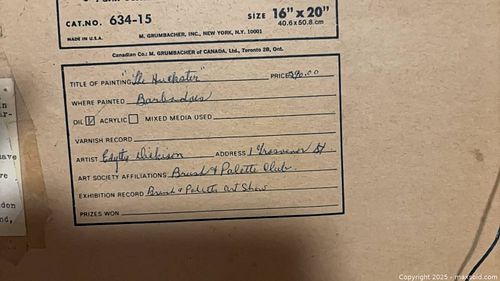 CAT.NO. 634-15 SIZE 16" x 20"
40.6 x 50.8 cm
MADE IN U.S.A. M. GRUMBACHER, INC., NEW YORK, N.Y. 10001
Canadian Co.: M. GRUMBACHER of CANADA, Ltd., Toronto 2B, Ont.
TITLE OF PAINTING "The Huckster" PRICE 290.00
WHERE PAINTED Barbados
OIL ACRYLIC MIXED MEDIA USED
VARNISH RECORD
ARTIST Edythe Dickison ADDRESS 1 Grosvenor St
ART SOCIETY AFFILIATIONS Brush & Palette Club.
EXHIBITION RECORD Brush & Palette Art Show
PRIZES WON
ave
re
don
nd,
Copyright © 2025 - maxsold.com